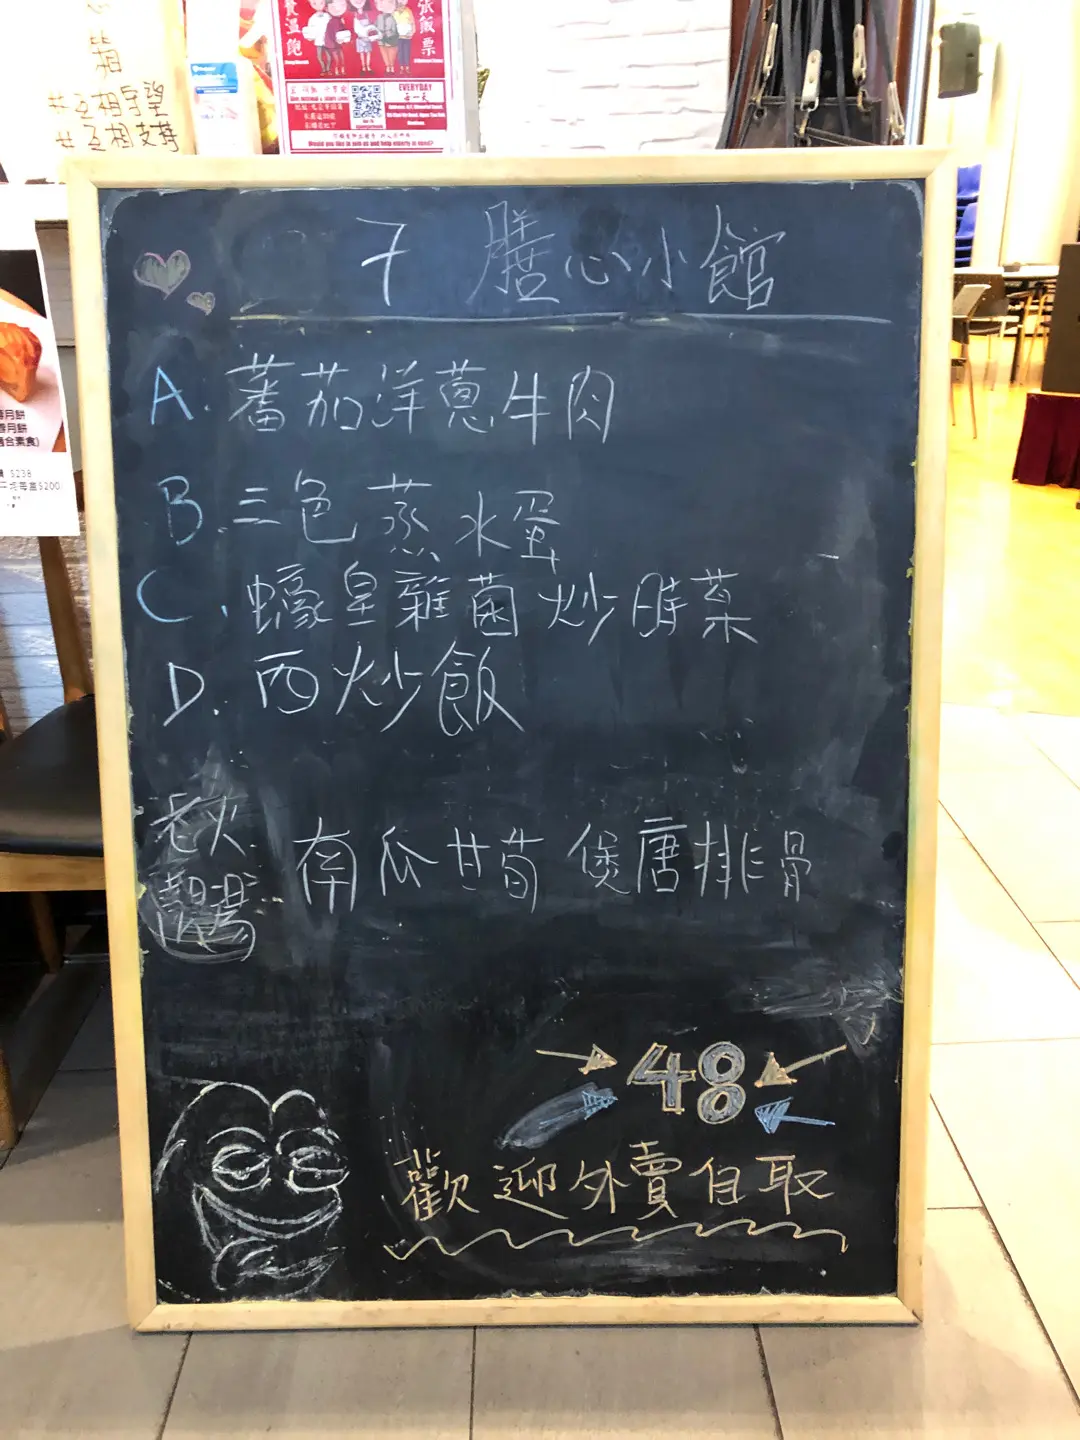 箱
#互相守望
#互相支持
溫飽
飯票
EVERYDAY
Would you like to join us and help elderly in need?
月餅
月餅
適合素食)
$238
$200
7 膳心小館
A. 蕃茄洋蔥牛肉
B. 三色蒸水蛋
C. 蠔皇雜菌炒時菜
D. 西炒飯
老火靚湯 南瓜甘筍煲唐排骨
48
歡迎外賣自取